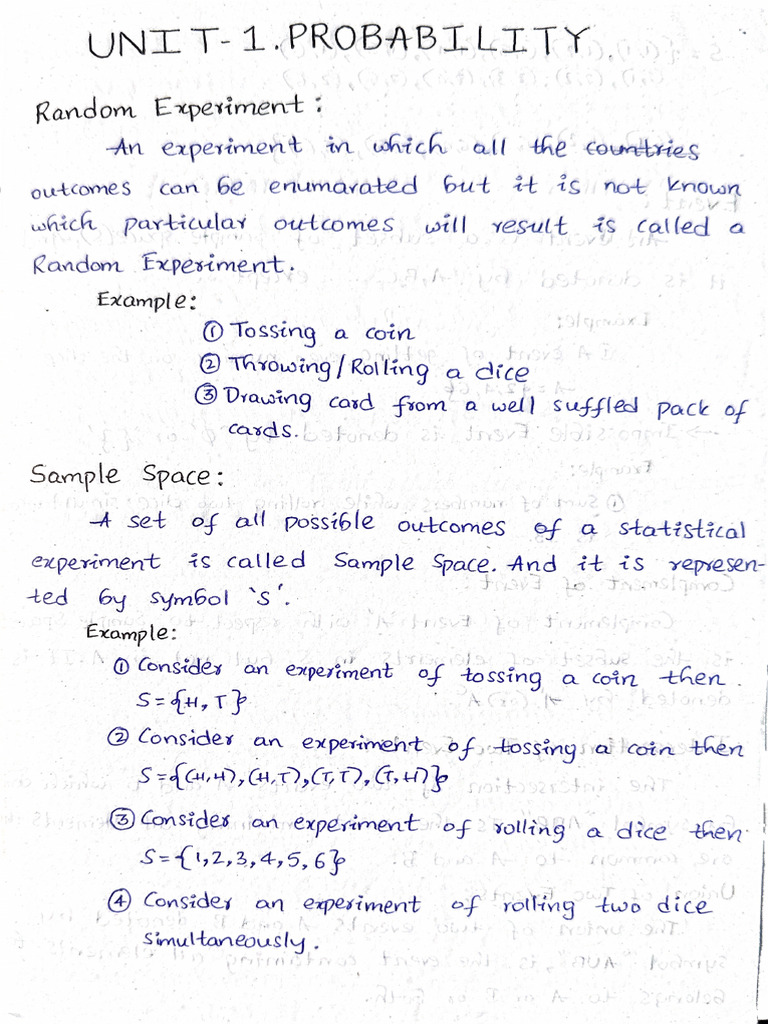 UNIT-1.PROBABILITY
Random Experiment:
An experiment in which all the countries
outcomes can be enumarated but it is not known
which particular outcomes will result is called a
Random Experiment.
Example:
① Tossing a coin
② Throwing/Rolling a dice
③ Drawing card from a well suffled pack of
cards.
Sample Space:
A set of all possible outcomes of a statistical
experiment is called Sample Space. And it is represen-
ted by symbol 's'.
Example:
① Consider an experiment of tossing a coin then.
S={H,T}
② Consider an experiment of tossing a coin then
S={(H,H),(H,T),(T,T),(T,H)}
③ Consider an experiment of rolling a dice then.
S={1,2,3,4,5,6}
④ Consider an experiment of rolling two dice
simultaneously.